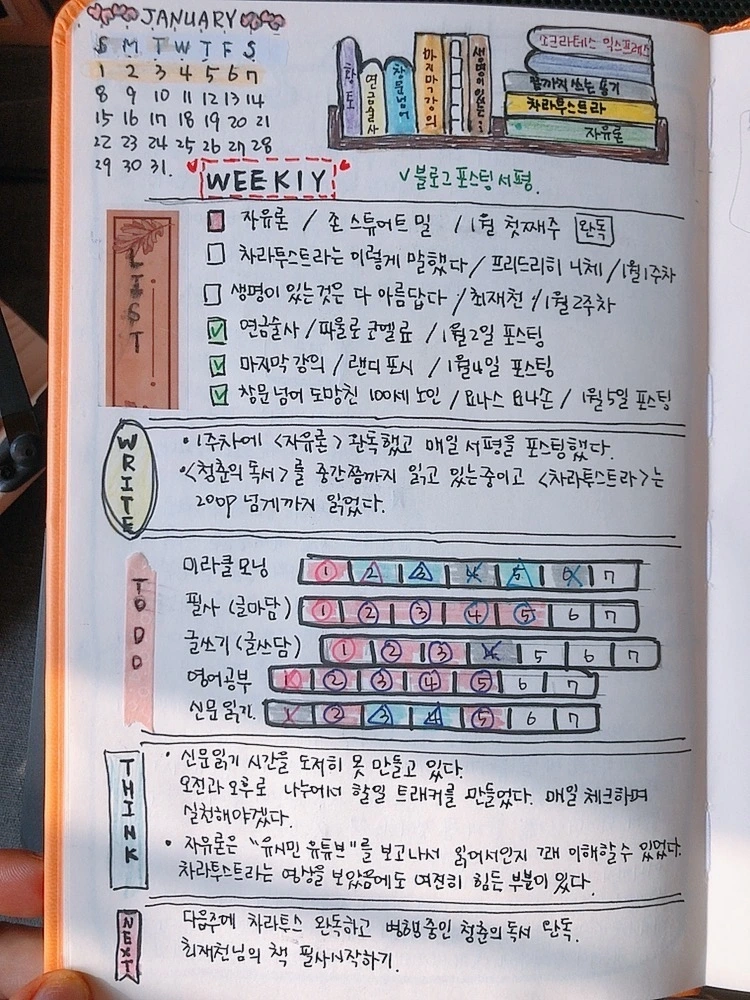 JANUARY
S M T W T F S
1 2 3 4 5 6 7
8 9 10 11 12 13 14
15 16 17 18 19 20 21
22 23 24 25 26 27 28
29 30 31.
연금술사
창문넘어
마지막강의
생명이있는
소크라테스 익스프레스
끝까지 쓰는 용기
차라투스트라
자유론
WEEKLY
V 블로그 포스팅 서평.
LIST
자유론 / 존 스튜어트 밀 / 1월 첫째주 완독
차라투스트라는 이렇게 말했다 / 프리드리히 니체 / 1월 1주차
생명이 있는것은 다 아름답다 / 최재천 / 1월 2주차
연금술사 / 파울로 코엘료 / 1월 2일 포스팅
마지막 강의 / 랜디 포시 / 1월 4일 포스팅
창문넘어 도망친 100세 노인 / 요나스 요나손 / 1월 5일 포스팅
WRITE
• 1주차에 <자유론> 완독했고 매일 서평을 포스팅했다.
• <청춘의 독서>를 중간쯤까지 읽고 있는중이고 <차라투스트라>는
200p 넘게까지 읽었다.
TO DO
미라클 모닝 1 2 3 4 5 6 7
필사 (글마담) 1 2 3 4 5 6 7
글쓰기 (글쓰담) 1 2 3 4 5 6 7
영어공부 1 2 3 4 5 6 7
신문 읽기 1 2 3 4 5 6 7
THINK
• 신문읽기 시간을 도저히 못 만들고 있다.
오전과 오후로 나누어서 할일 트래커를 만들었다. 매일 체크하며
실천해야겠다.
• 자유론은 "유시민 유튜브"를 보고나서 읽어서인지 꽤 이해할수 있었다.
차라투스트라는 영상을 보았음에도 여전히 힘든 부분이 있다.
NEXT
다음주에 차라투스 완독하고 병행중인 청춘의독서 완독.
최재천님의 책 필사시작하기.